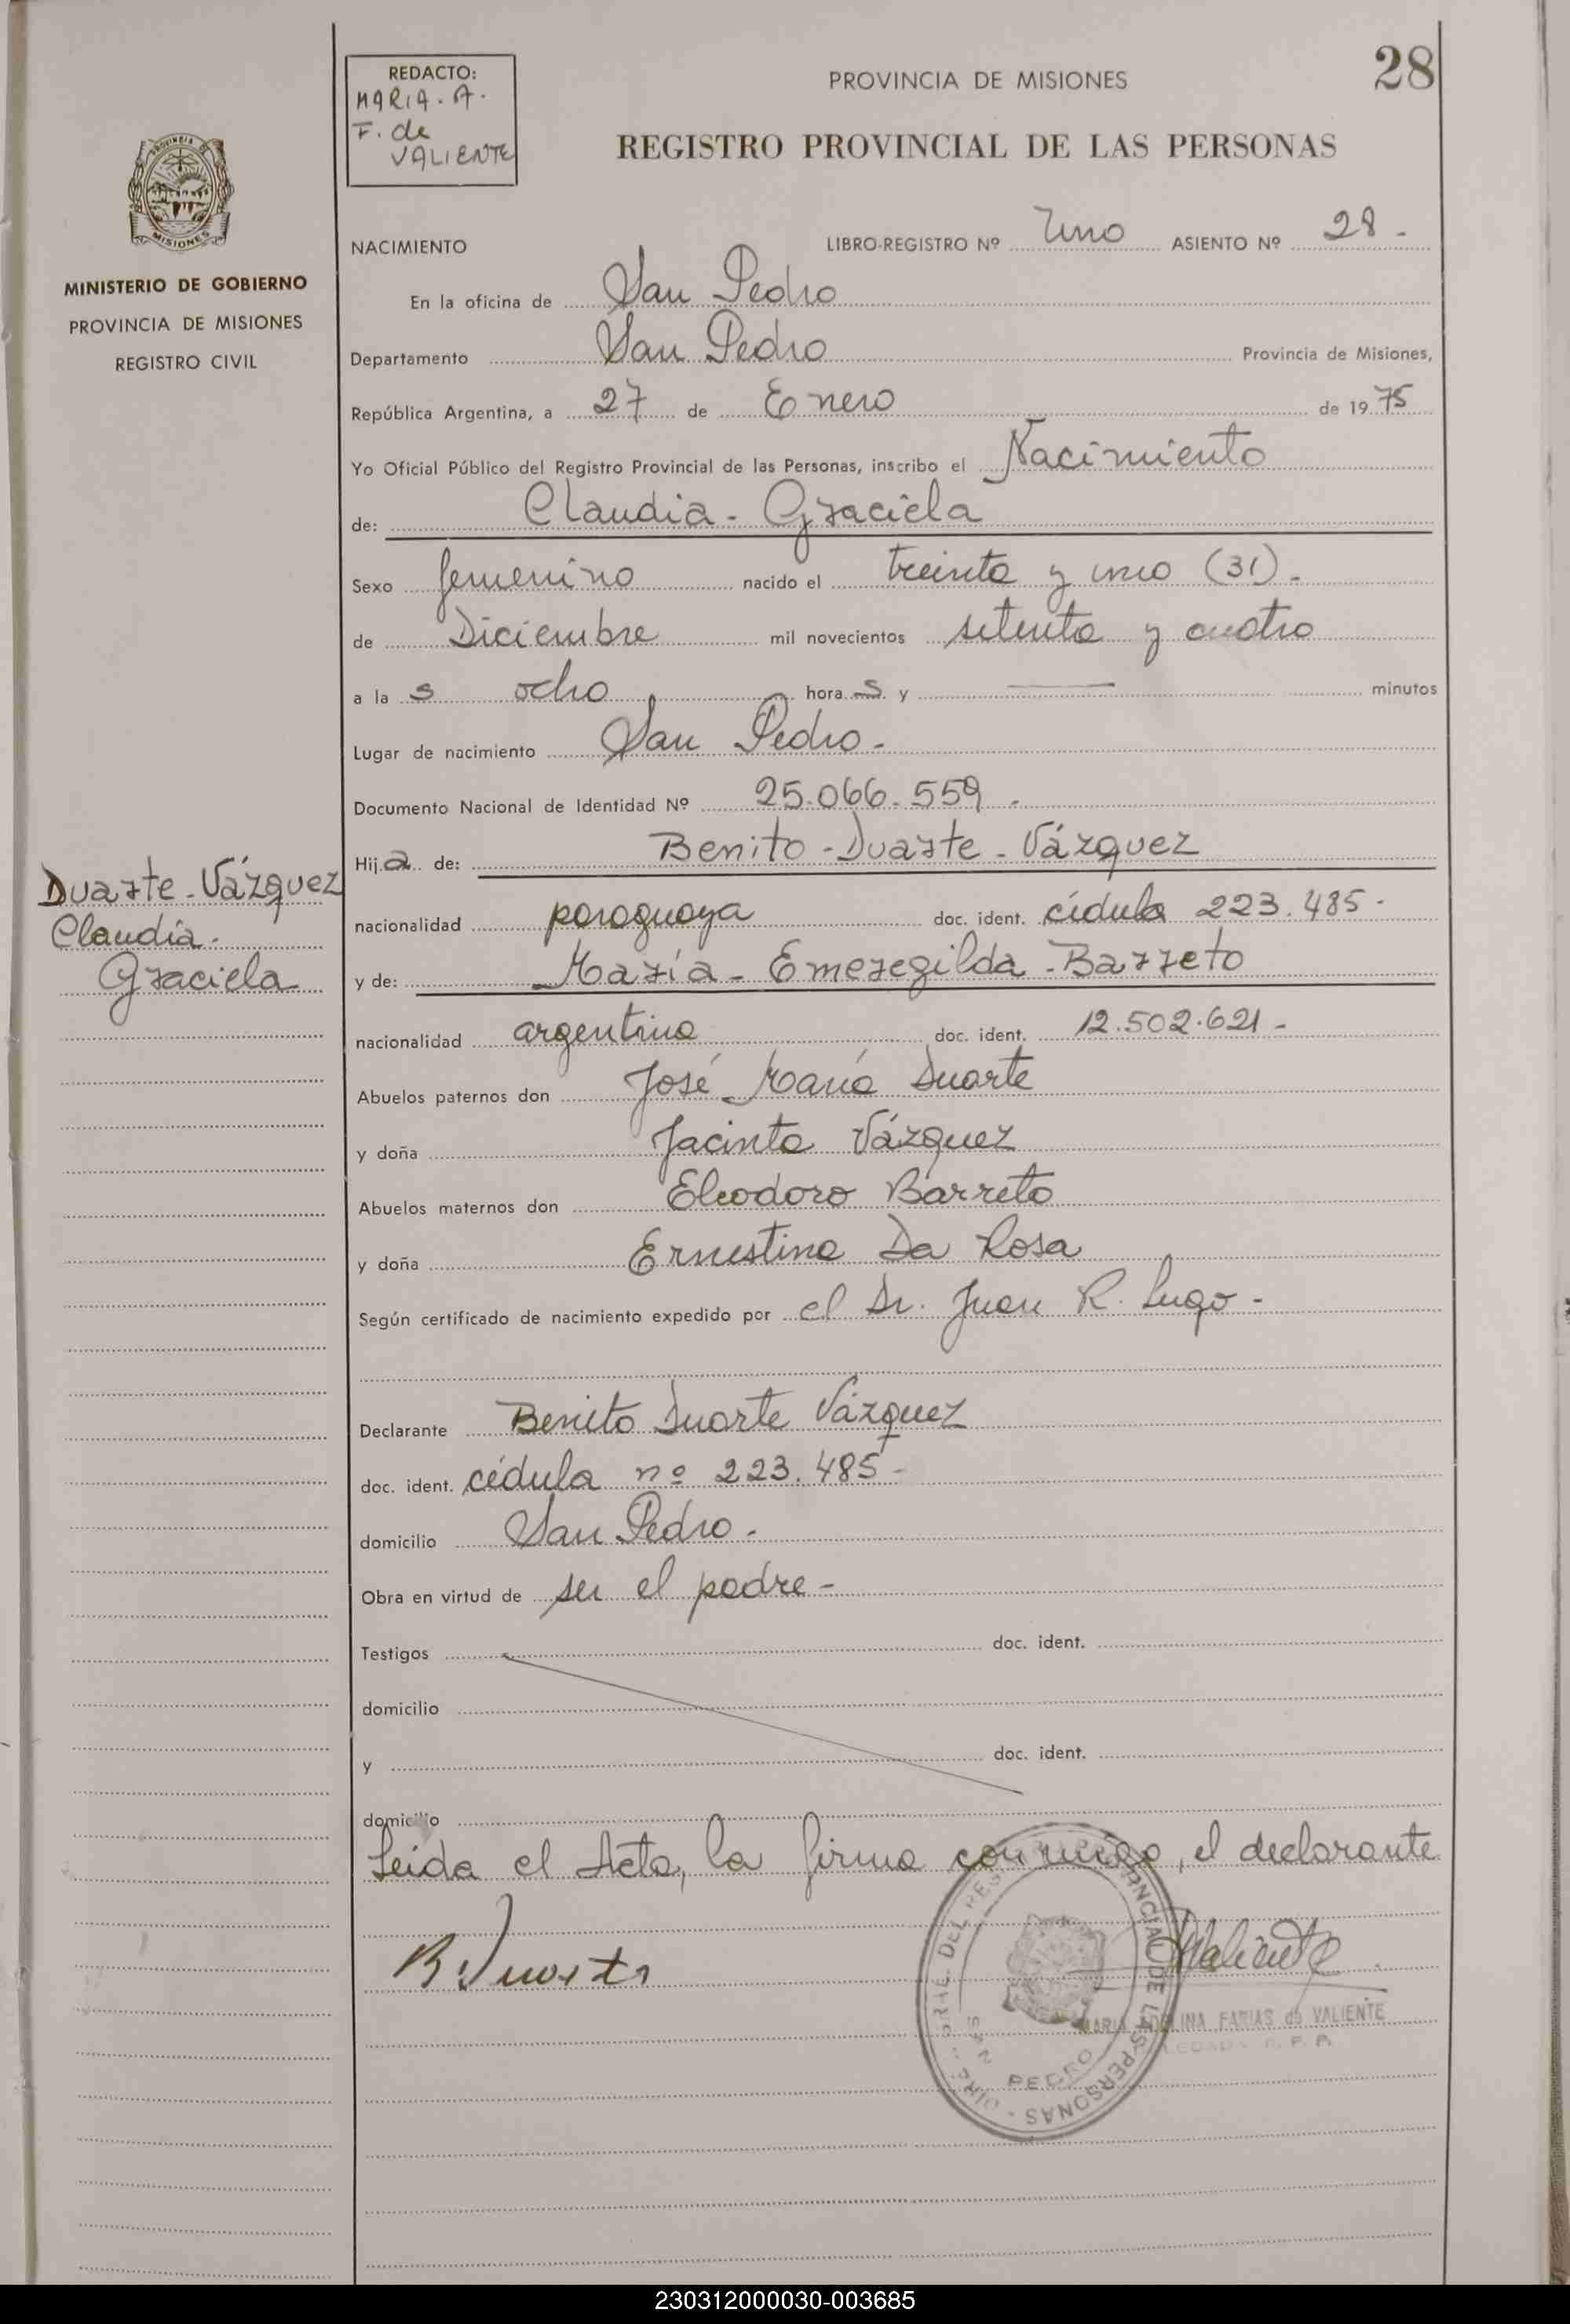 28
REDACTO:
MARIA. A.
F. de
VALIENTE
PROVINCIA DE MISIONES
REGISTRO PROVINCIAL DE LAS PERSONAS
PROVINCIA DE
MISIONES
MINISTERIO DE GOBIERNO
PROVINCIA DE MISIONES
REGISTRO CIVIL
NACIMIENTO LIBRO-REGISTRO Nº Uno ASIENTO Nº 28.
En la oficina de San Pedro
Departamento San Pedro Provincia de Misiones,
República Argentina, a 27 de Enero de 1975
Yo Oficial Público del Registro Provincial de las Personas, inscribo el Nacimiento
de: Claudia - Graciela
Sexo femenino nacido el treinta y uno (31).
de Diciembre mil novecientos setenta y cuatro
a las ocho horas y — minutos
Lugar de nacimiento San Pedro.
Documento Nacional de Identidad Nº 25.066.559.
Hija de: Benito - Duarte - Vázquez
Duarte - Vázquez
Claudia.
Graciela
nacionalidad paraguaya doc. ident. cédula 223.485.
y de: María - Emeregilda - Barreto
nacionalidad argentina doc. ident. 12.502.621 -
Abuelos paternos don José María Duarte
y doña Jacinta Vázquez
Abuelos maternos don Eleodoro Barreto
y doña Ernestina Da Rosa
Según certificado de nacimiento expedido por el Dr. Juan R. Lugo -
Declarante Benito Duarte Vázquez
doc. ident. cédula nº 223.485 -
domicilio San Pedro.
Obra en virtud de ser el padre -
Testigos doc. ident.
domicilio
y doc. ident.
domicilio
Leida el Acta, la firma conmigo, el declarante
B. Duarte
Valiente
FARIAS de VALIENTE
SAN PEDRO
230312000030-003685